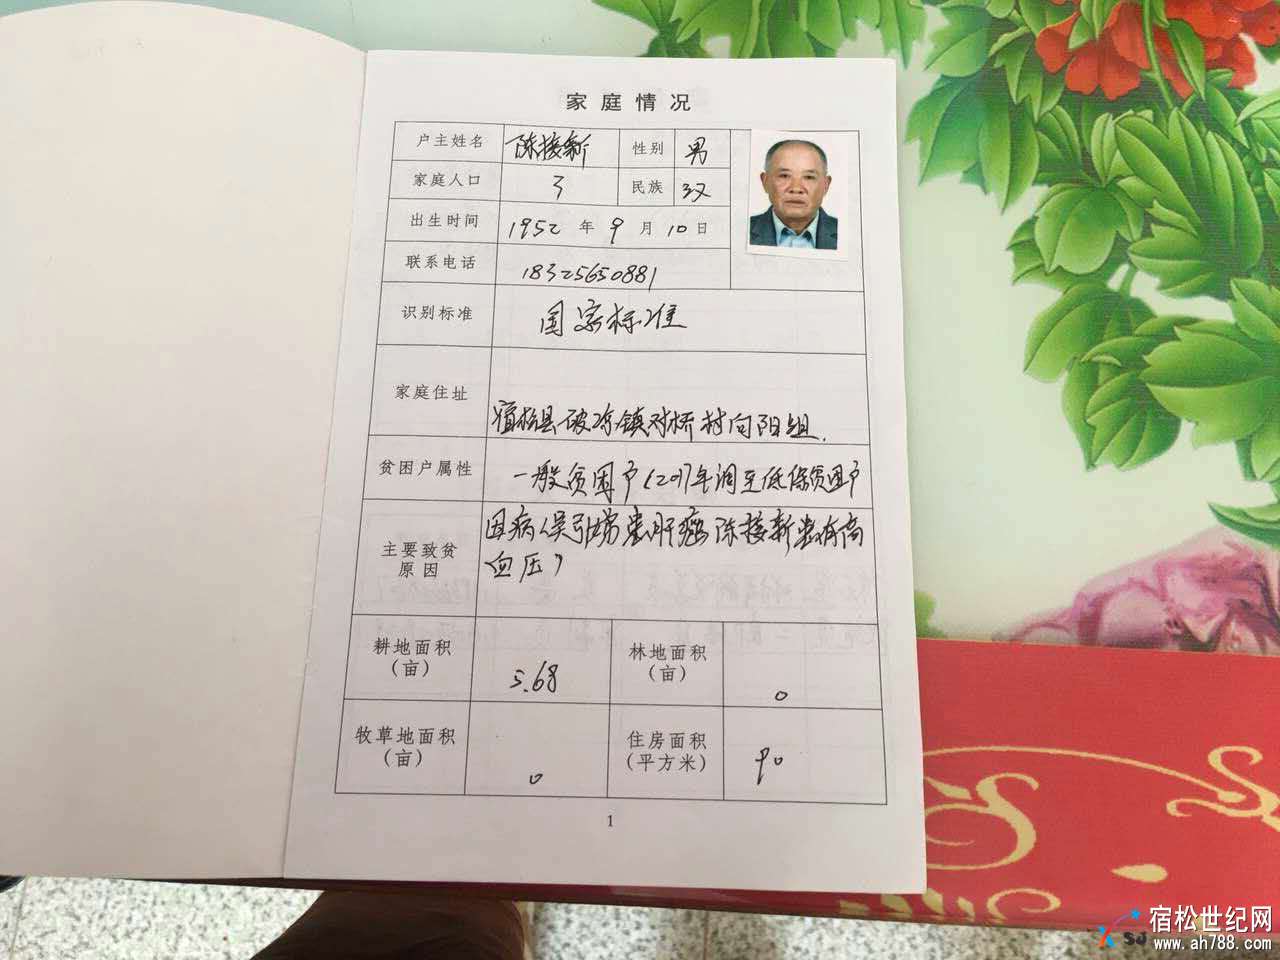 家庭情况
户主姓名 陈接新 性别 男
家庭人口 3 民族 汉
出生时间 1952 年 9 月 10 日
联系电话 18325650881
识别标准 国家标准
家庭住址 宿松县破凉镇对桥村向阳组.
贫困户属性 一般贫困户(2017年调至低保贫困户
主要致贫
原因
因病(吴引弟患肝癌 陈接新患有高
血压)
耕地面积
(亩)
5.68
林地面积
(亩)
0
牧草地面积
(亩)
0
住房面积
(平方米)
90
1
宿松世纪网
www.ah788.com